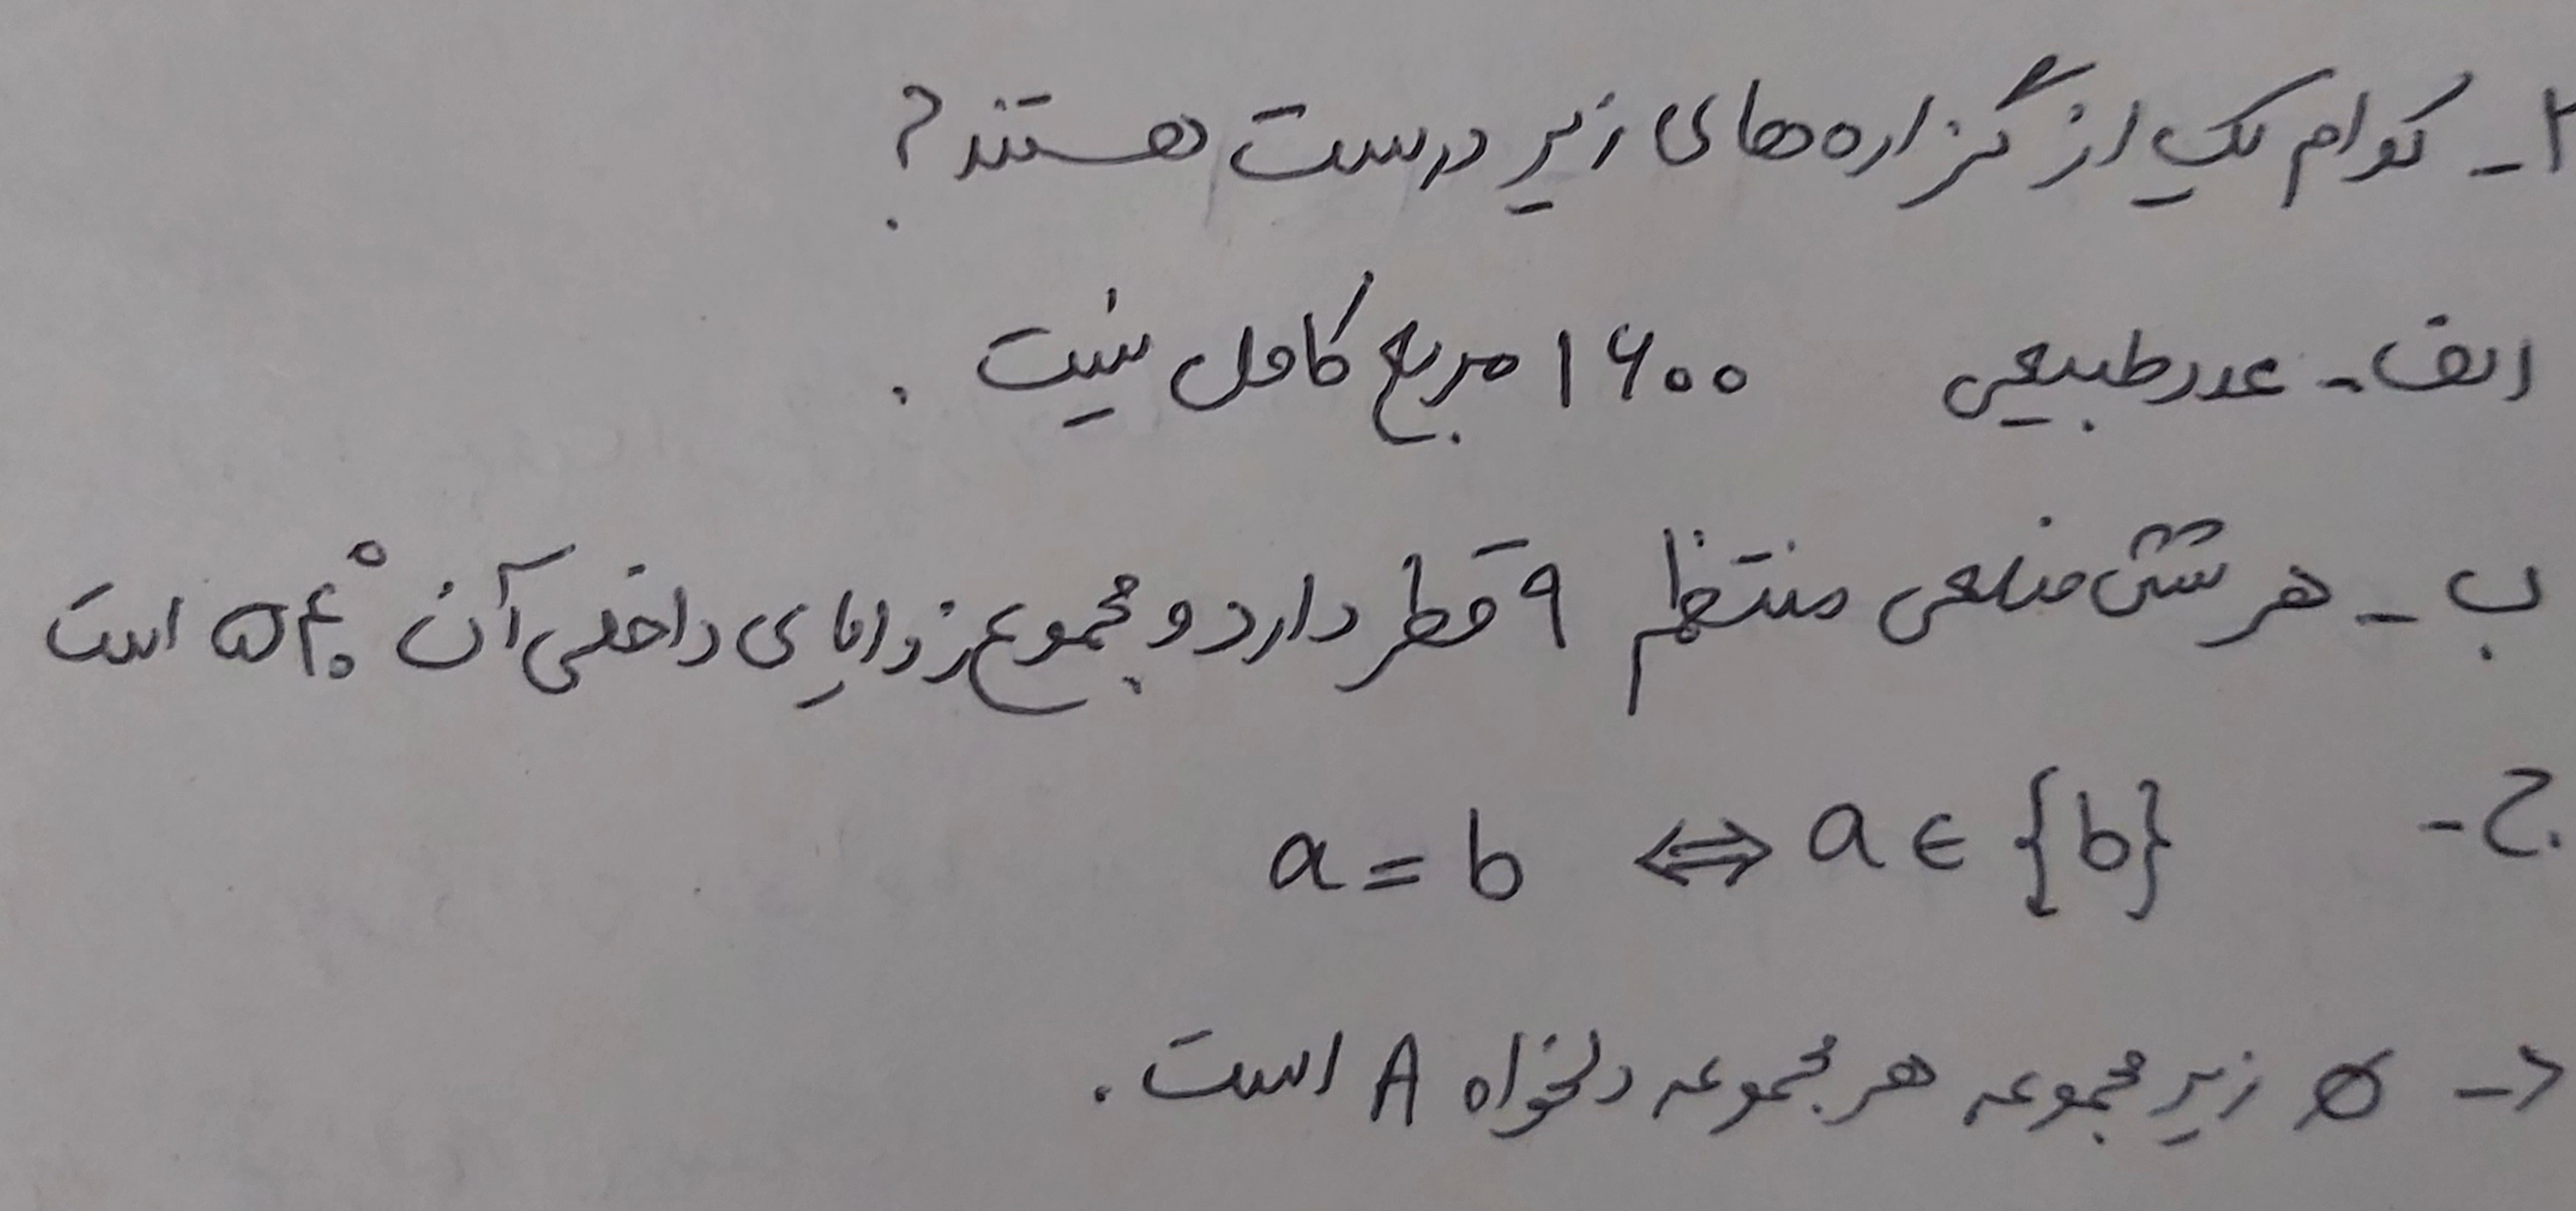 ۲- کدام یک از گزاره‌های زیر درست هستند؟
الف- عدد طبیعی ۱۶۰۰ مربع کامل نیست.
ب- هر شش ضلعی منتظم ۹ قطر دارد و مجموع زوایای داخلی آن ۵۴۰° است
ج- a = b ⇔ a ∈ {b}
د- ∅ زیر مجموعه هر مجموعه دلخواه A است.